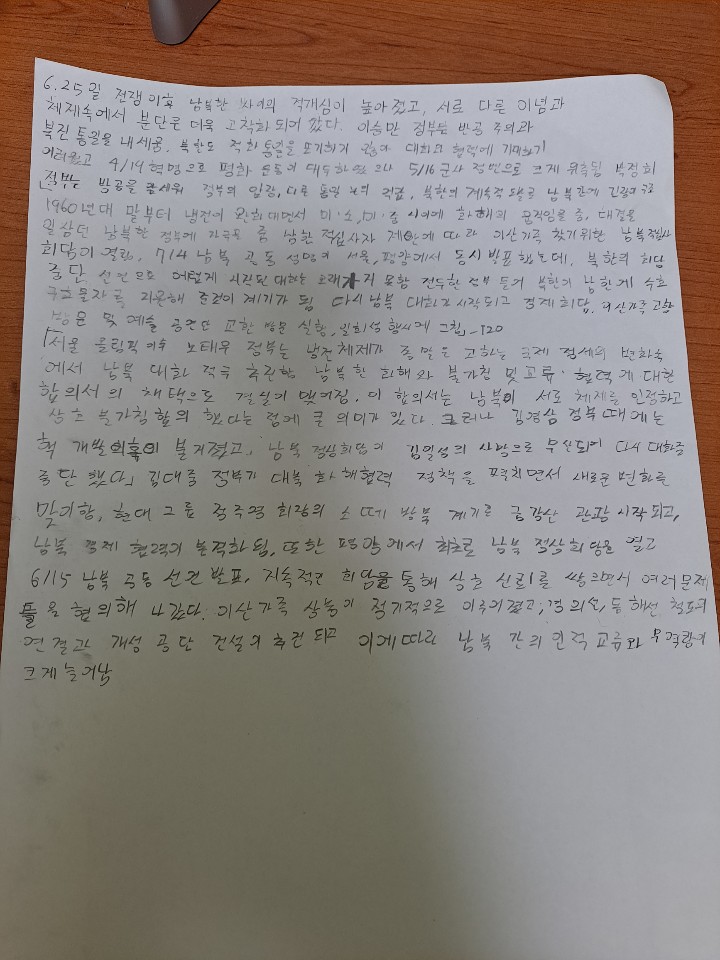 6.25일 전쟁 이후 남북한 사이의 적개심이 높아졌고, 서로 다른 이념과
체제속에서 분단은 더욱 고착화 되어 갔다. 이승만 정부는 반공 주의와
북진 통일을 내세움. 북한도 적화 통일을 포기하지 않아 대화와 협력에 기대하기
어려웠고 4/19 혁명으로 평화 통일이 대두하였으나 5/16 군사 정변으로 크게 위축됨 박정희
정부는 반공을 내세워 정부의 입장, 다른 통일 논의 억압, 북한의 계속적 도발로 남북간에 긴장이 고조
1960년대 말부터 냉전이 완화되면서 미·소, 미·중 사이에 화해의 움직임을 줌, 대결을
일삼던 남북한 정부에 자극을 줌 남한 적십자사 제안에 따라 이산가족 찾기위한 남북적십자
회담이 열림, 7/4 남북 공동 성명이 서울, 평양에서 동시 발표 했는데, 북한의 회담
중단 선언으로 어렵게 시작된 대화는 오래가지 못함 전두환 정부 들어 북한이 남한에 수해
구호물자를 지원해 준것이 계기가 됨 다시 남북 대화가 시작되고 경제 회담, 이산가족 고향
방문 및 예술 공연단 교환 방문 실행, 일회성 행사에 그침 -120
「서울 올림픽 이후 노태우 정부는 냉전체제가 종말을 고하는 국제 정세의 변화속
에서 남북 대화 적극 추진함 남북한 화해와 불가침 및 교류·협력에 대한
합의서의 채택으로 결실이 맺어짐. 이 합의서는 남북이 서로 체제를 인정하고
상호 불가침 합의 했다는 점에 큰 의미가 있다. 그러나 김영삼 정부 때에는
핵 개발의혹이 불거졌고, 남북 정상회담이 김일성의 사망으로 무산되어 다시 대화를
중단 했다」 김대중 정부가 대북 화해협력 정책을 펼치면서 새로운 변화를
맞이함, 현대 그룹 정주영 회장의 소떼 방북 계기로 금강산 관광 시작되고,
남북 경제 협력이 본격화 됨, 또한 평양에서 최초로 남북 정상회담을 열고
6/15 남북 공동 선언 발표, 지속적인 회담을 통해 상호 신뢰를 쌓으면서 여러문제
들을 협의해 나갔다. 이산가족 상봉이 정기적으로 이루어졌고, 경의선, 동해선 철도의
연결과 개성 공단 건설이 추진 되고 이에따라 남북 간의 인적 교류와 무역량이
크게 늘어남